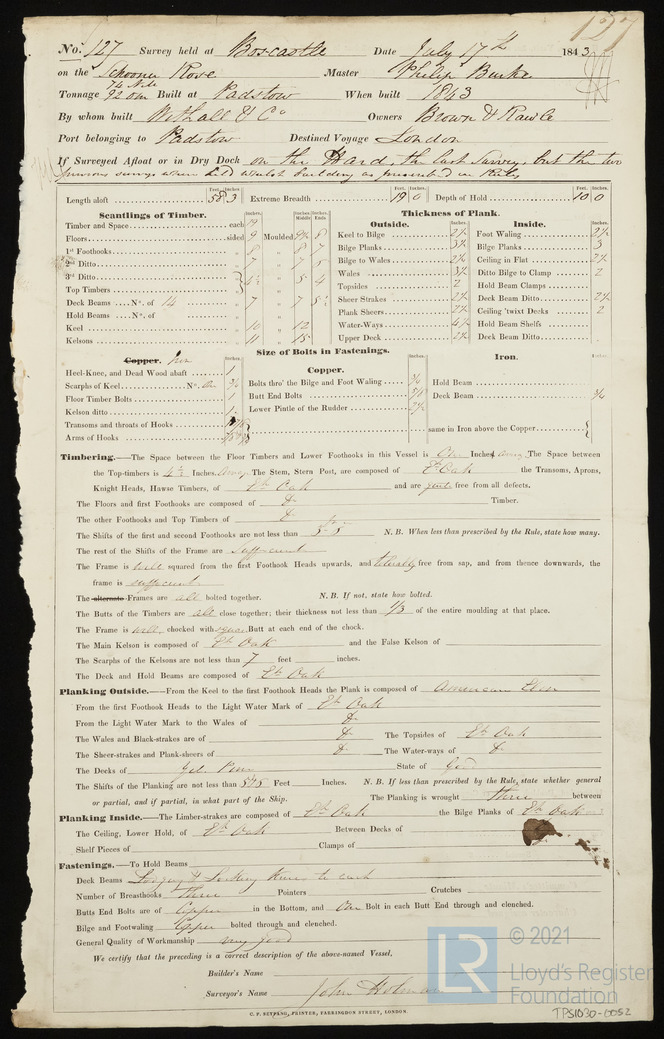 127
No. 127 Survey held at Boscastle Date July 17th 1843
on the Schooner Rose Master Philip Burke
Tonnage 74 N.M. 92 om Built at Padstow When built 1843
By whom built Withall & Co Owners Brown & Rawle
Port belonging to Padstow Destined Voyage London
If Surveyed Afloat or in Dry Dock on the Hard, the last survey, but the two
previous surveys when held whilst building as prescribed in Rules
Length aloft 58 3 Extreme Breadth 19 0 Depth of Hold 10 0
Scantlings of Timber.
Timber and Space each 19
Floors sided 9 Moulded 9½ 8
1st Foothooks 8 8 7
2nd Ditto 7 7 5
3rd Ditto
Top Timbers 4½ 5 4
Deck Beams No. of 14 7 7 5½
Hold Beams No. of
Keel 10 12
Kelsons 11 15
Thickness of Plank.
Outside.
Keel to Bilge 2½
Bilge Planks 3½
Bilge to Wales 2½
Wales 3½
Topsides 2
Sheer Strakes 2½
Plank Sheers 2½
Water-Ways 4½
Upper Deck 2½
Inside.
Foot Waling 2½
Bilge Planks 3
Ceiling in Flat 2½
Ditto Bilge to Clamp 2
Hold Beam Clamps
Deck Beam Ditto 2½
Ceiling 'twixt Decks 2
Hold Beam Shelfs
Deck Beam Ditto
Size of Bolts in Fastenings.
Copper. Iron
Heel-Knee, and Dead Wood abaft 1
Scarphs of Keel No. One ¾
Floor Timber Bolts 1
Kelson ditto 1
Transoms and throats of Hooks
Arms of Hooks
Copper.
Bolts thro' the Bilge and Foot Waling ¾
Butt End Bolts 5/8
Lower Pintle of the Rudder 2½
Iron.
Hold Beam
Deck Beam ¾
same in Iron above the Copper
Timbering.—The Space between the Floor Timbers and Lower Foothooks in this Vessel is One Inches Averg. The Space between
the Top-timbers is 4½ Inches. Averg. The Stem, Stern Post, are composed of Eh Oak the Transoms, Aprons,
Knight Heads, Hawse Timbers, of Eh Oak and are quite free from all defects.
The Floors and first Foothooks are composed of Do Timber.
The other Foothooks and Top Timbers of Do
The Shifts of the first and second Foothooks are not less than N.B. When less than prescribed by the Rule, state how many.
The rest of the Shifts of the Frame are sufficient
The Frame is well squared from the first Footheads upwards, and tolerably free from sap, and from thence downwards, the
frame is sufficient
The alternate Frames are all bolted together. N.B. If not, state how bolted.
The Butts of the Timbers are all close together; their thickness not less than 1/3 of the entire moulding at that place.
The Frame is well chocked with square Butt at each end of the chock.
The Main Kelson is composed of Eh Oak and the False Kelson of
The Scarphs of the Kelsons are not less than 7 feet inches.
The Deck and Hold Beams are composed of Eh Oak
Planking Outside.—From the Keel to the first Footheads the Plank is composed of American Elm
From the first Footheads to the Light Water Mark of Eh Oak
From the Light Water Mark to the Wales of Do
The Wales and Black-strakes are of Do The Topsides of Eh Oak
The Sheer-strakes and Plank-sheers of Do The Water-ways of Do
The Decks of Yel. Pine State of Good
The Shifts of the Planking are not less than 5 & 5 Feet Inches. N.B. If less than prescribed by the Rule, state whether general
or partial, and if partial, in what part of the Ship. The Planking is wrought three between
Planking Inside.—The Limber-strakes are composed of Eh Oak the Bilge Planks of Eh Oak
The Ceiling, Lower Hold, of Eh Oak Between Decks of
Shelf Pieces of Clamps of
Fastenings.—To Hold Beams
Deck Beams Lodging & Hanging Knees to each
Number of Breasthooks three Pointers Crutches
Butts End Bolts are of Copper in the Bottom, and One Bolt in each Butt End through and clenched.
Bilge and Footwaling Copper bolted through and clenched.
General Quality of Workmanship very good
We certify that the preceding is a correct description of the above-named Vessel,
Builder's Name
Surveyor's Name John Holman
C. F. SEYFANG, PRINTER, FARRINGDON STREET, LONDON.
LR © 2021
Lloyd's Register
Foundation
TPS1030-0052